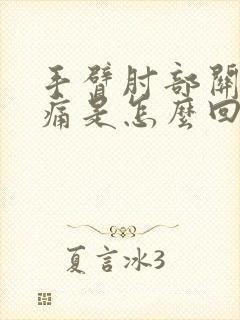 手臂肘部關
痛是怎麼回
夏言冰3